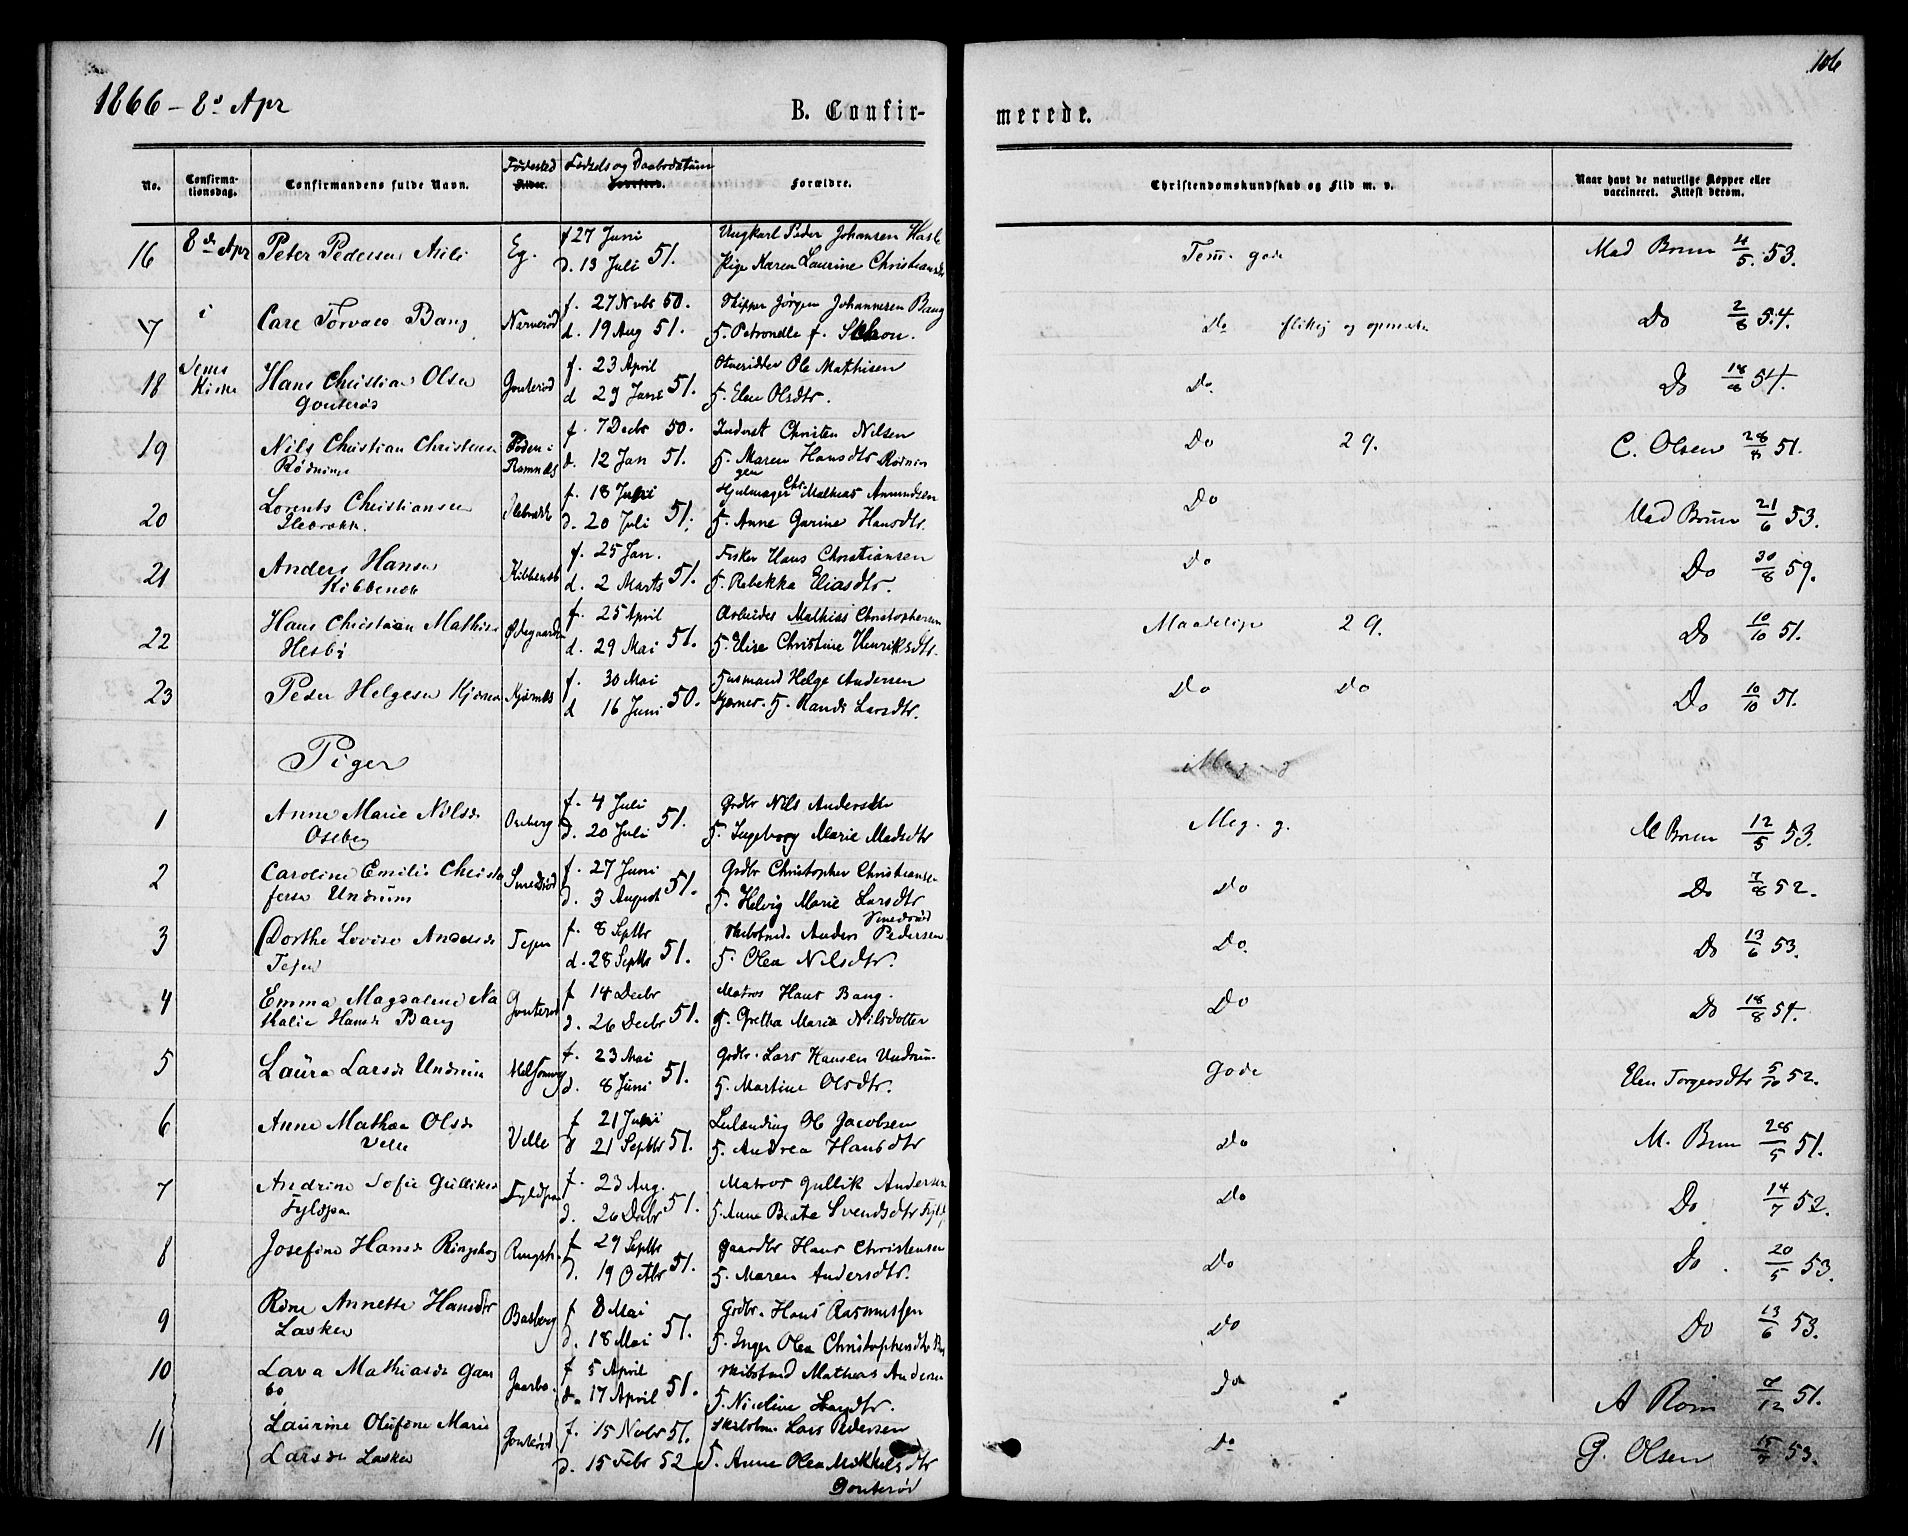 1866 - 8de Apr
B. Confir-
merede.
106
No.
Confirma-
tionsdag.
Confirmandens fulde Navn.
Fødested
Alder.
Fødsels og Daabsdatum
Forældre.
Christendomskundskab og Flid m. v.
Naar havt de naturlige Kopper eller
vaccineret. Attest derom.
16 8de Apr Peter Pedersen Eg. f 27 Juni d. 13 Juli 51. Ungkarl Peder Johansen
Pige Karen Laurine Christiansdr
Tem. gode Mad Brun 4/5 53.
17 i Carl Torvald Bang f. 27 Nvbr 50. d. 19 Aug 51. Skipper Jørgen Johannesen Bang
H. Petronelle f. Schou.
Do flittig og Do 2/8 54.
18 Sems Kirke Hans Christian Olsen
Gonterød Gonterød f. 23 April d 29 Juni 51. Ole Mathisen
H. Elen Olsdtr.
Do. Do 18/8 54.
19 Nils Christian Christensen Føden i Ramnæs f. 7 Decbr 50. d. 12 Jan 51. Inderst Christen Nilsen
H. Maren Hansdtr
Do 29. C. Olsen 28/8 51.
20 Lorents Christiansen
f. 18 Juni d. 20 Juli 51. Hjulmager Chr. Mathias Amundsen
H. Anne Gurine Hansdtr.
Do Mad Brun 21/6 53.
21 Anders Hansen
f. 25 Jan. d. 2 Marts 51. Fisker Hans Christiansen
H. Rebekka Eliasdtr.
Do Do 30/8 59.
22 Hans Christian Mathisen
Hesbø Ødegaarden f. 25 April d. 29 Mai 51. Arbeider Mathias Christophersen
H. Elise Christine Henriksdtr.
Maadelige 29. Do 10/10 51.
23 Peder Helgesen Kjærnæs Kjærnæs f. 30 Mai d 16 Juni 50. Husmand Helge Andersen
Kjærnes. H. Randi Larsdtr.
Do Do Do 10/10 51.
Piger
Meg. g
1 Anne Marie Nilsdr
Oseberg Oseberg f. 4 Juli d. 20 Juli 51. Grdbr Nils Andersen
H. Ingeborg Marie Madsdtr
Meg. g. M Brun 12/5 53.
2 Caroline Emilie Christo
fersdr Undrum Smedsrød f. 27 Juni d. 3 August 51. Grdbr Christopher Christiansen
H. Helvig Marie Larsdtr
Smedsrød
Do Do 7/8 52.
3 Dorthe Lovise Andersdr
f. 8 Septbr d. 28 Septbr 51. Anders Pedersen
H. Olea Nilsdtr.
Do. Do 13/6 53.
4 Emma Magdalene Na
thalie Hansdr Bang Gonterød f 14 Decbr d. 26 Decbr 51. Matros Hans Bang.
H. Gretha Maria Nilsdotter
Do Do 18/8 54.
5 Laura Larsdr Undrum Melsomvig f. 23 Mai d. 8 Juni 51. Grdbr. Lars Hansen Undrum
H. Martine Olsdtr.
gode Elen Torgersdtr 5/10 52.
6 Anne Mathea Olsdr
Velle Velle f 21 Juli d 21 Septbr 51. Ole Jacobsen
H. Andrea Hansdtr
Do M. Brun 28/5 51.
7 Andrine Sofie Gulliksdr
Fyldpaa Fyldpaa f. 23 Aug. d. 26 Octbr 51. Matros Gullik Andersen
H. Anne Beate Svendsdtr Fyldp
Do Do 14/7 52.
8 Josefine Hansdr Ringshoug f 29 Septbr d. 19 Octbr 51. Gaardbr Hans Christensen
H. Maren Andersdtr.
Do Do. 20/5 53.
9 Annette Hansdtr
Lasken Basberg f 8 Mai d. 18 Mai 51. Grdbr. Hans Rasmussen
H. Inger Olea Christophersdtr
Do Do 13/6 53.
10 Lava Mathiasdr Gaar
bo Gaarbo f 5 April d. 17 April 51. Mathias Andersen
H. Nicoline
Do A Rom 7/12 51.
11 Laurine Olufine Marie
Larsdr Lasken Gonterød f. 15 Novbr 51. d. 15 Febr 52 Lars Pedersen
H. Anne Olea Mikkelsdtr
Gonterød
Do G. Olsen 15/7 53.